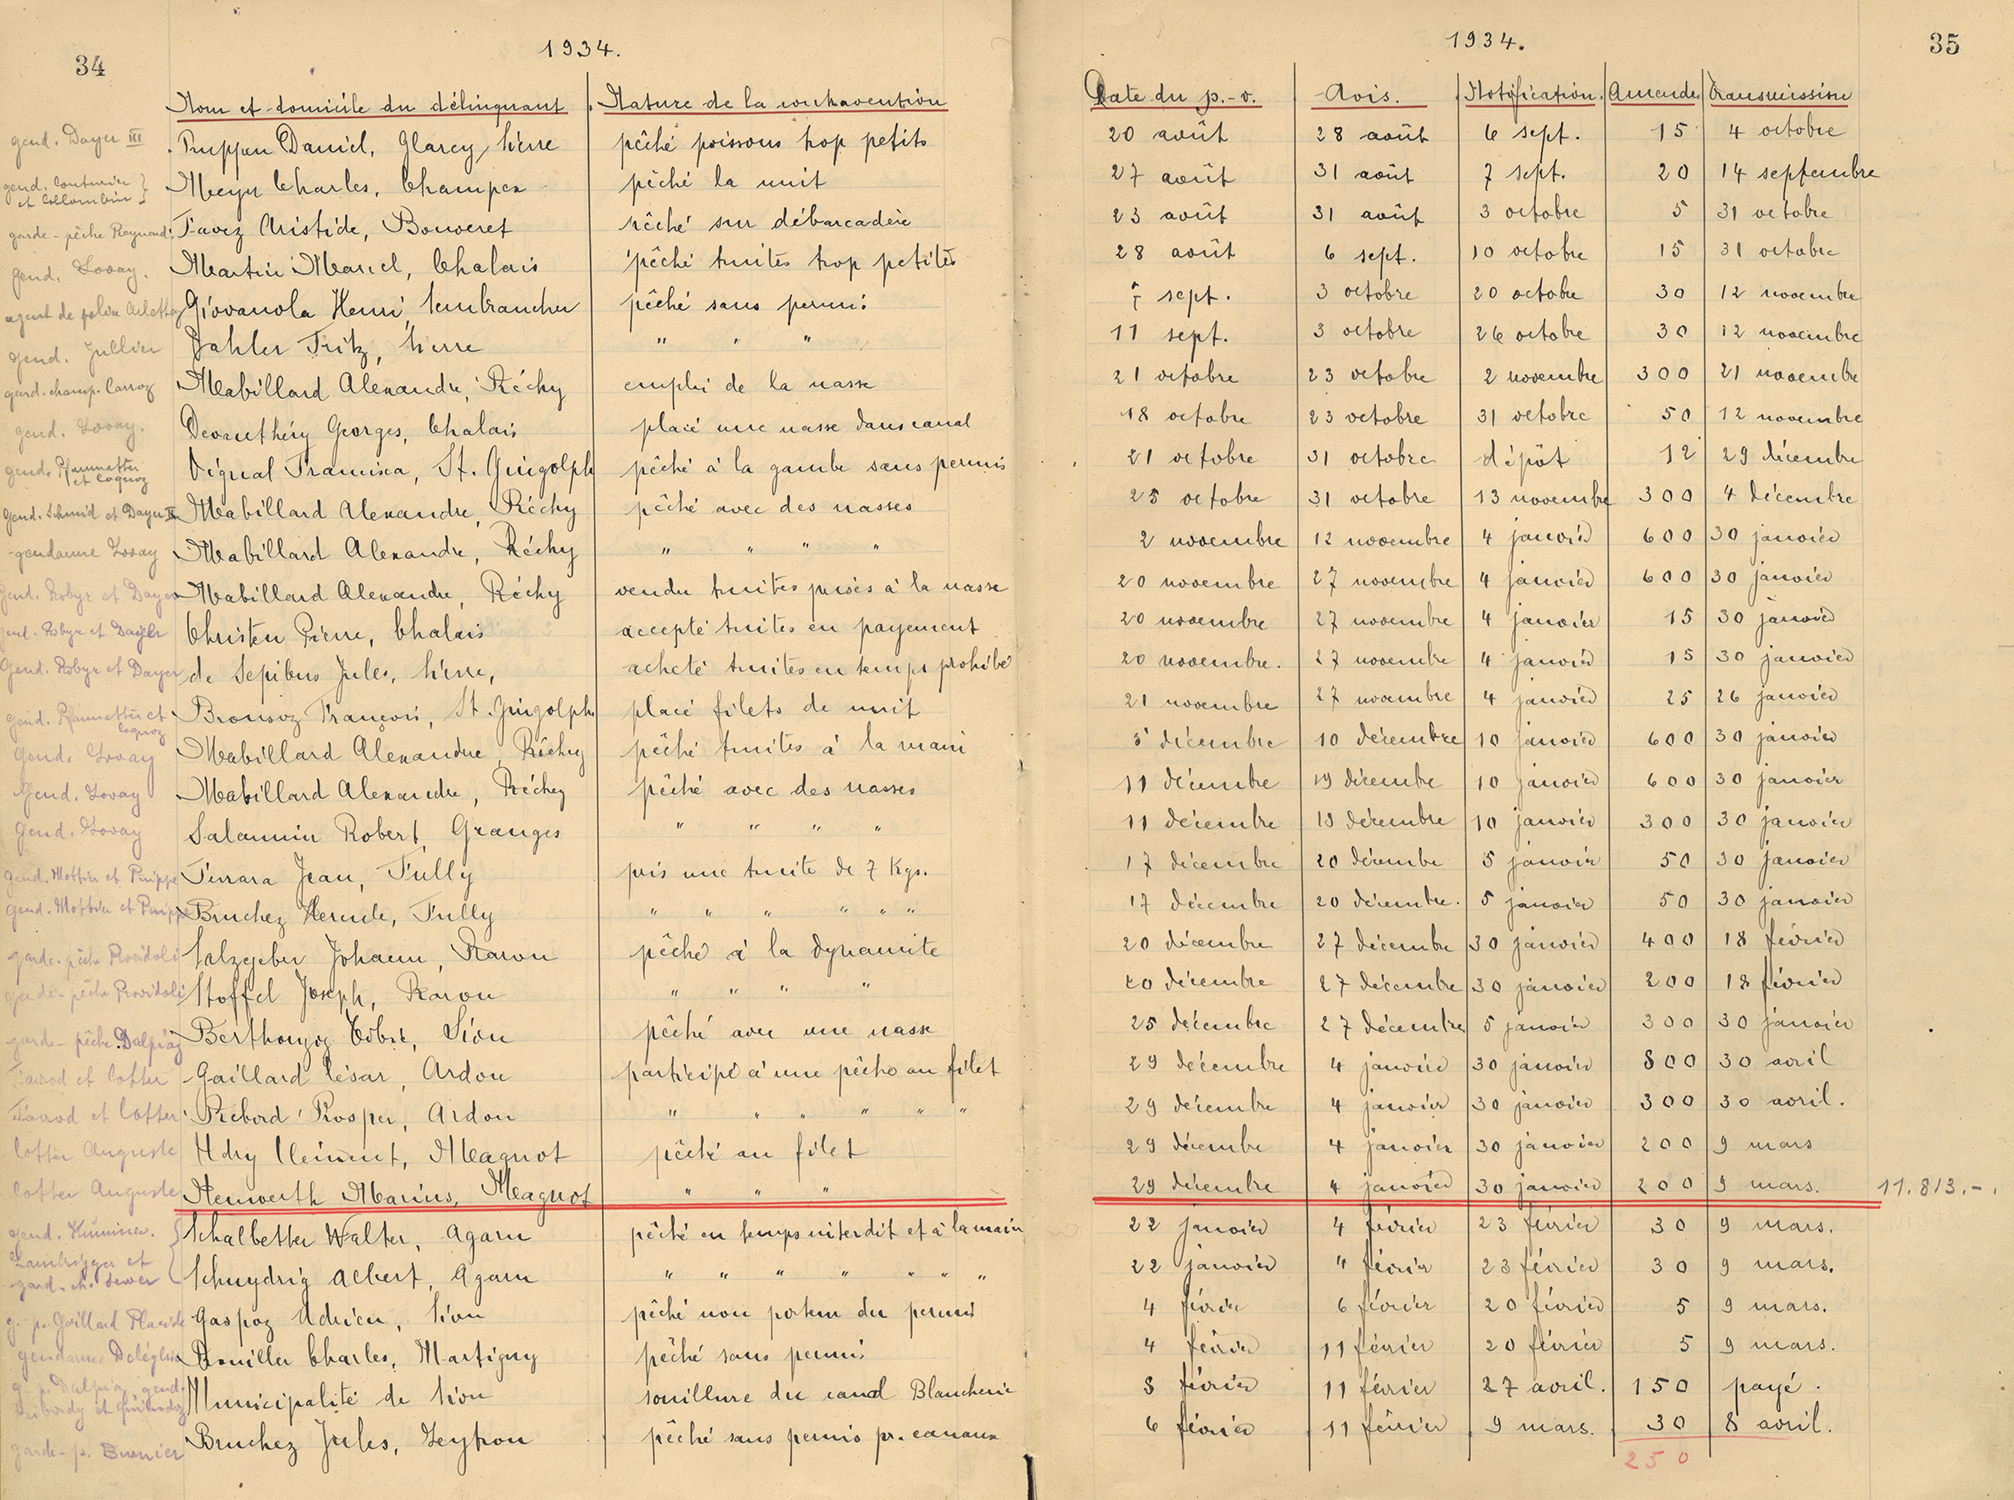 34
1934.
Nom et domicile du délinquant Nature de la contravention
gend. Dayer III Puippan Daniel, Glarey, Sierre pêché poissons trop petits
gend. Couturier et Collombin Meyer Charles, Champex pêché la nuit
garde-pêche Raymond Favez Aristide, Bouveret pêché sur débarcadère
gend. Lovay. Martin Marcel, Chalais pêché truites trop petites
agent de police Arlettaz Giovanola Henri, Sembrancher pêché sans permis
gend. Jullier Dahler Fritz, Sierre " " "
gard. champ. Carroz Mabillard Alexandre, Réchy emploi de la nasse
gend. Lovay. Devanthéry Georges, Chalais placé une nasse dans canal
gend. Pfammatter et Coquoz Vignal Francisca, St. Gingolph pêché à la gambe sans permis
gend. Schmid et Dayer II Mabillard Alexandre, Réchy pêché avec des nasses
gendarme Lovay Mabillard Alexandre, Réchy " " " "
gend. Robyr et Dayer Mabillard Alexandre, Réchy vendu truites prises à la nasse
gend. Robyr et Dayer Christen Pierre, Chalais accepté truites en payement
Gend. Robyr et Dayer de Sepibus Jules, Sierre, acheté truites en temps prohibé
gend. Pfammatter et Coquoz Bronsoz François, St. Gingolph placé filets de nuit
Gend. Lovay Mabillard Alexandre, Réchy pêché truites à la main
Gend. Lovay Mabillard Alexandre, Réchy pêché avec des nasses
Gend. Lovay Salamin Robert, Granges " " " "
gend. Mottier et Puippe Ferrara Jean, Fully pris une truite de 7 Kgs.
gend. Mottier et Puippe Bruchez Hercule, Fully " " " " " "
garde-pêche Providoli Salzgeber Johann, Raron pêché à la dynamite
garde-pêche Providoli Stoffel Joseph, Raron " " " "
garde-pêche Dalpiaz Berthouzoz Edm, Sion pêché avec une nasse
Favrod et Cotter Gaillard César, Ardon participé à une pêche au filet
Favrod et Cotter Rebord Prosper, Ardon " " " " " "
Cotter Auguste Udry Clément, Magnot pêché au filet
Cotter Auguste Germanier Marius, Magnot " " "
gend. Lambrigger et gard. ch. Schalbetter Walter, Agarn pêché en temps interdit et à la main
Schnydrig Albert, Agarn " " " " " " "
g. p. Gaillard Placide Gaspoz Adrien, Sion pêché non porteur du permis
gendarme Délèglise Rouiller Charles, Martigny pêché sans permis
g. p. Dalpiaz, gend. Municipalité de Sion souillure du canal Blancherie
garde-p. Burnier Bruchez Jules, Leytron pêché sans permis pr. canaux
35
1934.
Date du p.-v. Avis. Notification. Amende Transmission
20 août 28 août 6 sept. 15 4 octobre
27 août 31 août 7 sept. 20 14 septembre
23 août 31 août 3 octobre 5 31 octobre
28 août 6 sept. 10 octobre 15 31 octobre
7 sept. 3 octobre 20 octobre 30 12 novembre
11 sept. 3 octobre 26 octobre 30 12 novembre
21 octobre 23 octobre 2 novembre 300 21 novembre
18 octobre 23 octobre 31 octobre 50 12 novembre
21 octobre 31 octobre dépôt 12 29 décembre
25 octobre 31 octobre 13 novembre 300 4 décembre
2 novembre 12 novembre 4 janvier 600 30 janvier
20 novembre 27 novembre 4 janvier 600 30 janvier
20 novembre 27 novembre 4 janvier 15 30 janvier
20 novembre. 27 novembre 4 janvier 15 30 janvier
21 novembre 27 novembre 4 janvier 25 26 janvier
5 décembre 10 décembre 10 janvier 600 30 janvier
11 décembre 19 décembre 10 janvier 600 30 janvier
11 décembre 19 décembre 10 janvier 300 30 janvier
17 décembre 20 décembre 5 janvier 50 30 janvier
17 décembre 20 décembre. 5 janvier 50 30 janvier
20 décembre 27 décembre 30 janvier 400 18 février
20 décembre 27 décembre 30 janvier 200 18 février
25 décembre 27 décembre 5 janvier 300 30 janvier
29 décembre 4 janvier 30 janvier 800 30 avril
29 décembre 4 janvier 30 janvier 300 30 avril.
29 décembre 4 janvier 30 janvier 200 9 mars
29 décembre 4 janvier 30 janvier 200 9 mars. 11.813.-.
22 janvier 4 février 23 février 30 9 mars.
22 janvier 4 février 23 février 30 9 mars.
4 février 6 février 20 février 5 9 mars.
4 février 11 février 20 février 5 9 mars.
8 février 11 février 27 avril. 150 payé.
6 février 11 février 9 mars. 30 8 avril.
250